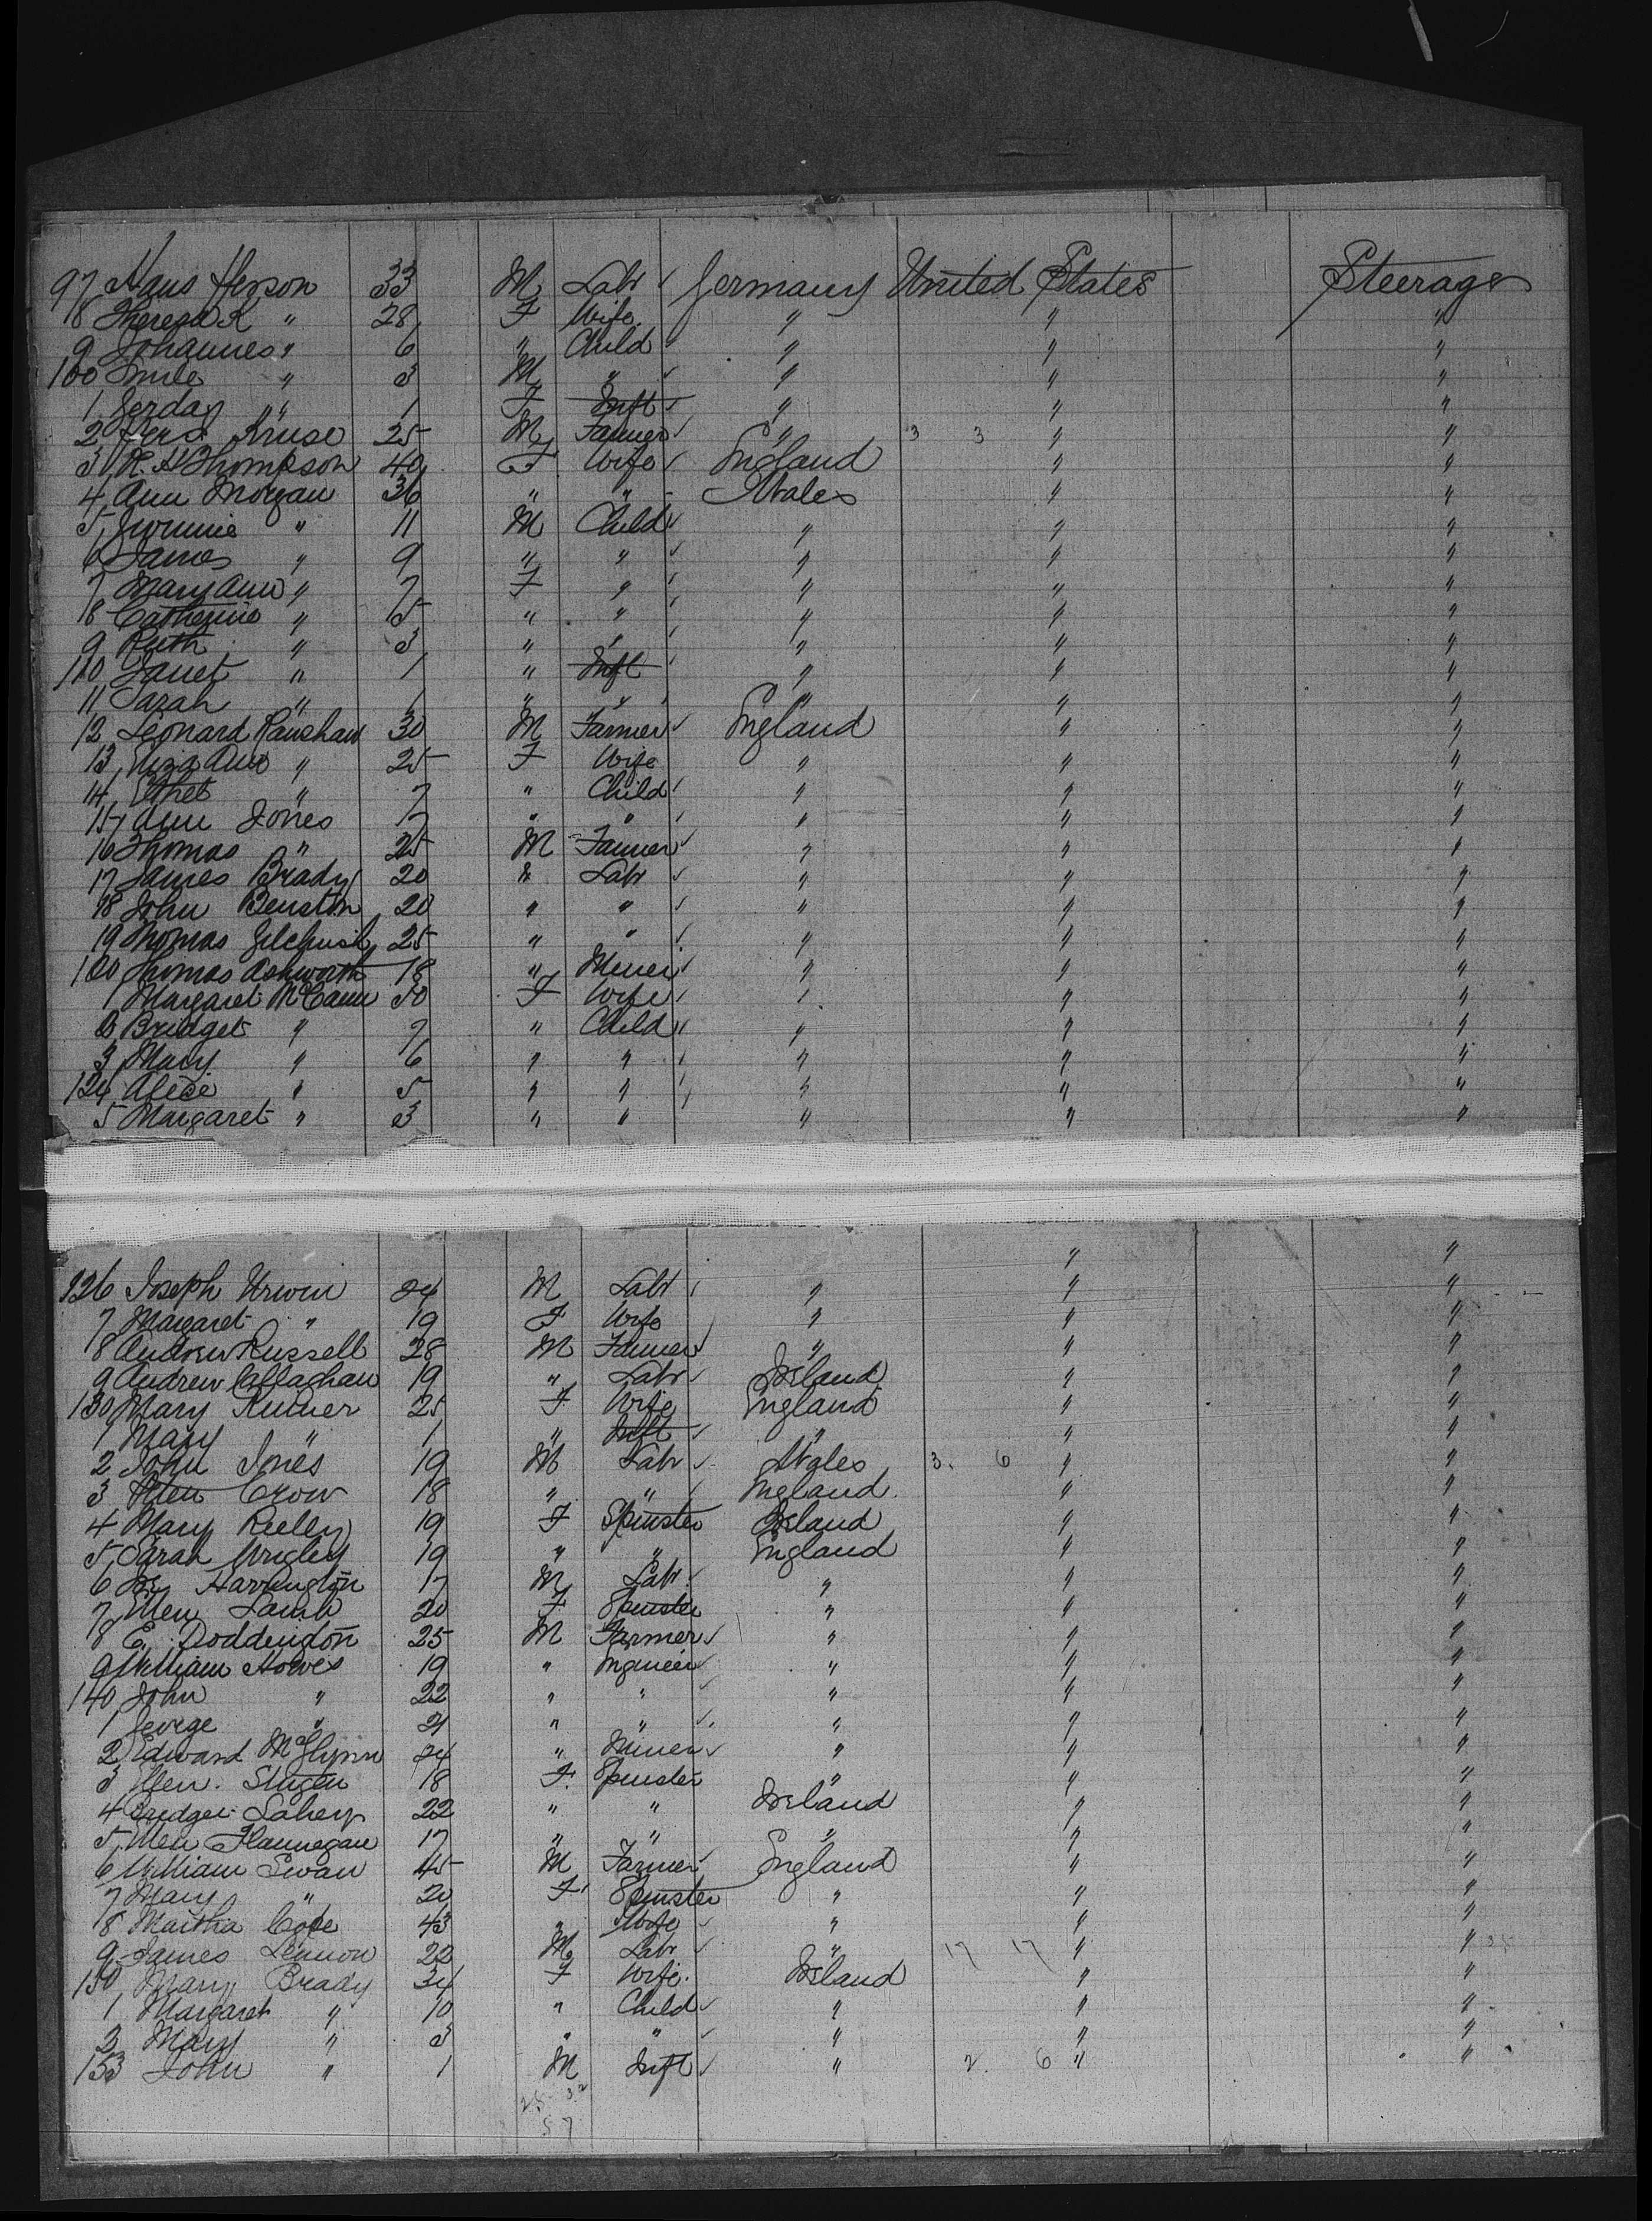 97 Hans Herson 33 M Labr Germany United States Steerage
8 Theresa K " 28 F Wife " " "
9 Johannes " 6 " Child " " "
100 Emile " 3 M " " " "
1 Gerday " 1 F Inft " " "
2 Ferd. Kruse 25 M Farmer " 3 3 " "
3 R. H Thompson 40 F Wife England " "
4 Ann Morgan 36 " " Wales " "
5 " 11 M Child " " "
6 James " 9 " " " " "
7 Mary Ann " 7 F " " " "
8 Catherine " 5 " " " " "
9 Ruth " 3 " " " " "
110 Janet " 1 " Inft " " "
11 Sarah " 1 " " " " "
12 Leonard Ranshaw 30 M Farmer England " "
13 Eliza Ann " 25 F Wife " " "
14 Ethel " 7 " Child " " "
15 Ann Jones 17 " " " " "
16 Thomas " 25 M Farmer " " "
17 James Brady 20 " Labr " " "
18 John Benston 20 " " " " "
19 Thomas Gilchrist 25 " " " " "
120 Thomas Ashworth 18 " Miner " " "
1 Margaret McCann 50 F Wife " " "
2 Bridget " 7 " Child " " "
3 Mary " 6 " " " " "
124 Alice " 5 " " " " "
5 Margaret " 3 " " " " "
" "
126 Joseph Urwin 24 M Labr " " "
7 Margaret " 19 F Wife " " "
8 Andrew Russell 28 M Farmer " " "
9 Andrew Callaghan 19 " Labr Ireland " "
130 Mary Rumer 25 F Wife England " "
1 Mary " 1 " Inft " " "
2 John Jones 19 M Labr Wales 3. 6 " "
3 Crow 18 " " England " "
4 Mary Reelly 19 F Spinster Ireland " "
5 Sarah Wrigley 19 " " England " "
6 Harrington 17 M Labr " " "
7 Ellen Lamb 20 F Spinster " " "
8 E. Doddington 25 M Farmer " " "
9 William Howes 19 " Engineer " " "
140 John " 22 " " " " "
1 George " 21 " " " " "
2 Edward McGlynn 24 " Miner " " "
3 Ellen 18 F. Spinster " " "
4 Bridget Lahey 22 " " Ireland " "
5 Ellen Flannegan 17 " " " " "
6 William Swan 45 M Farmer England " "
7 Mary " 20 F Spinster " " "
8 Martha Cope 43 " Wife " " "
9 James Lennon 22 M Labr " 17 17 " " 35
150 Mary Brady 34 F Wife. Ireland " "
1 Margaret " 10 " Child " " "
2 Mary " 3 " " " " "
153 John " 1 M Inft " 2. 6 " "
25 32
57